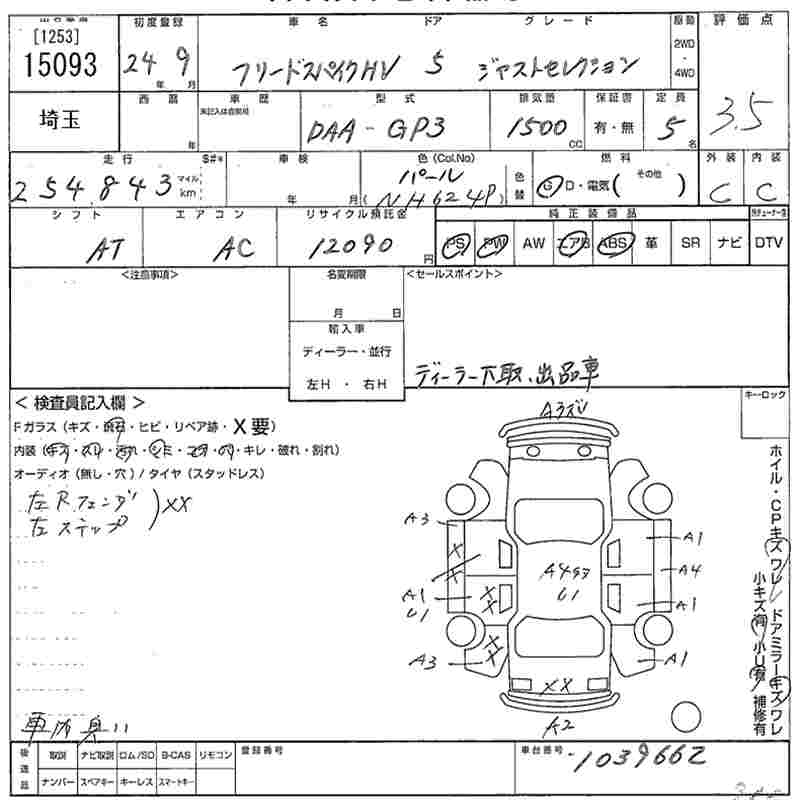 [1253]
15093
初度登録
24年9月
車名
フリードスパイクHV
ドア
5
グレード
ジャストセレクション
駆動
2WD
・
4WD
評価点
3.5
埼玉
西暦
年
車歴
型式
DAA-GP3
排気量
1500cc
保証書
有・無
定員
5名
走行
254,843
マイル
km
S#*
車検
年 月
色(Col.No)
パール
(NH624P)
色替
燃料
G D・電気(その他 )
外装
C
内装
C
シフト
AT
エアコン
AC
リサイクル預託金
12090円
純正装備品
PS PW AW エアB ABS 革 SR ナビ DTV
<注意事項>
名変期限
月 日
輸入車
ディーラー・並行
左H・右H
<セールスポイント>
ディーラー下取、出品車
キーロック
<検査員記入欄>
Fガラス(キズ・飛石・ヒビ・リペア跡・X要)
・キレ・破れ・割れ)
オーディオ(無し・穴)/タイヤ(スタッドレス)
左Rフェンダ
左ステップ
)XX
A3
X
X
A1
U1
X
X
A3
X
X
A1
A4
A1
A1
U1
XX
A2
ホイル・CPキズワレ ドアミラーキズワレ
小キズ有 小U有 補修有
後送品
取説 ナビ取説 ロム/SD B-CAS リモコン
ナンバー スペアキー キーレス スマートキー
登録番号
車台番号
-1039662